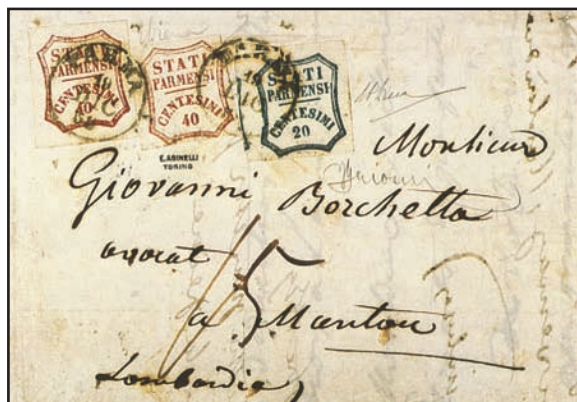 STATI
PARMENSI
CENTESIMI
10
STATI
PARMENSI
CENTESIMI
40
STATI
PARMENSI
CENTESIMI
20
PARMA
E. ASINELLI
TORINO
Monsieur
Giovanni Borchetta
avocat
15
a Mantou
Lombardia